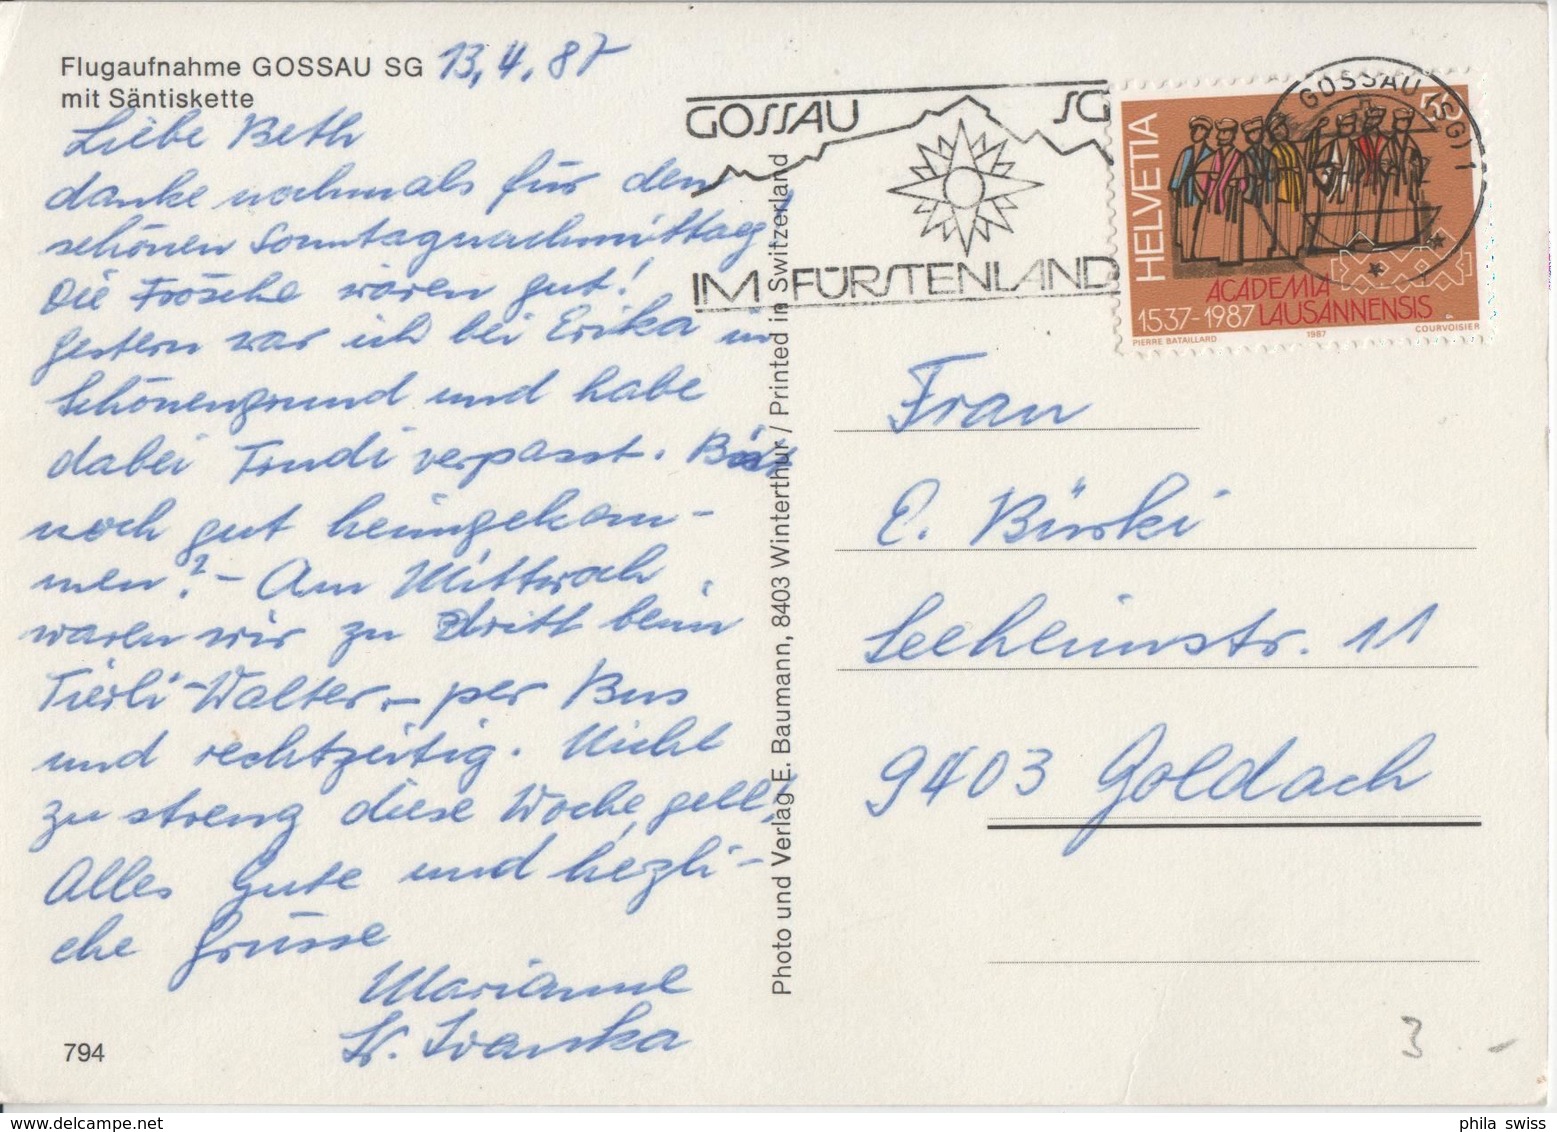 Flugaufnahme GOSSAU SG 13.4.87
mit Säntiskette
Liebe Beth
danke nochmals für den
schönen Sonntagnachmittag!
Die Frösche waren gut!
Gestern war ich bei Erika in
Schönengrund und habe
dabei Trudi verpasst. Bist
noch gut heimgekom-
men? – Am Mittwoch
waren wir zu dritt beim
Tierli-Walter – per Bus
und rechtzeitig. Nicht
zu streng diese Woche, gell!
Alles Gute und herzli-
che Grüsse
Marianne
Ivanka
794
Photo und Verlag E. Baumann, 8403 Winterthur / Printed in Switzerland
GOSSAU SG
IM FÜRSTENLAND
GOSSAU (SG) 1
HELVETIA
50
ACADEMIA
1537-1987 LAUSANNENSIS
PIERRE BATAILLARD 1987 COURVOISIER
Frau
E. Bürki
Seeheimstr. 11
9403 Goldach
3.-
phila swiss